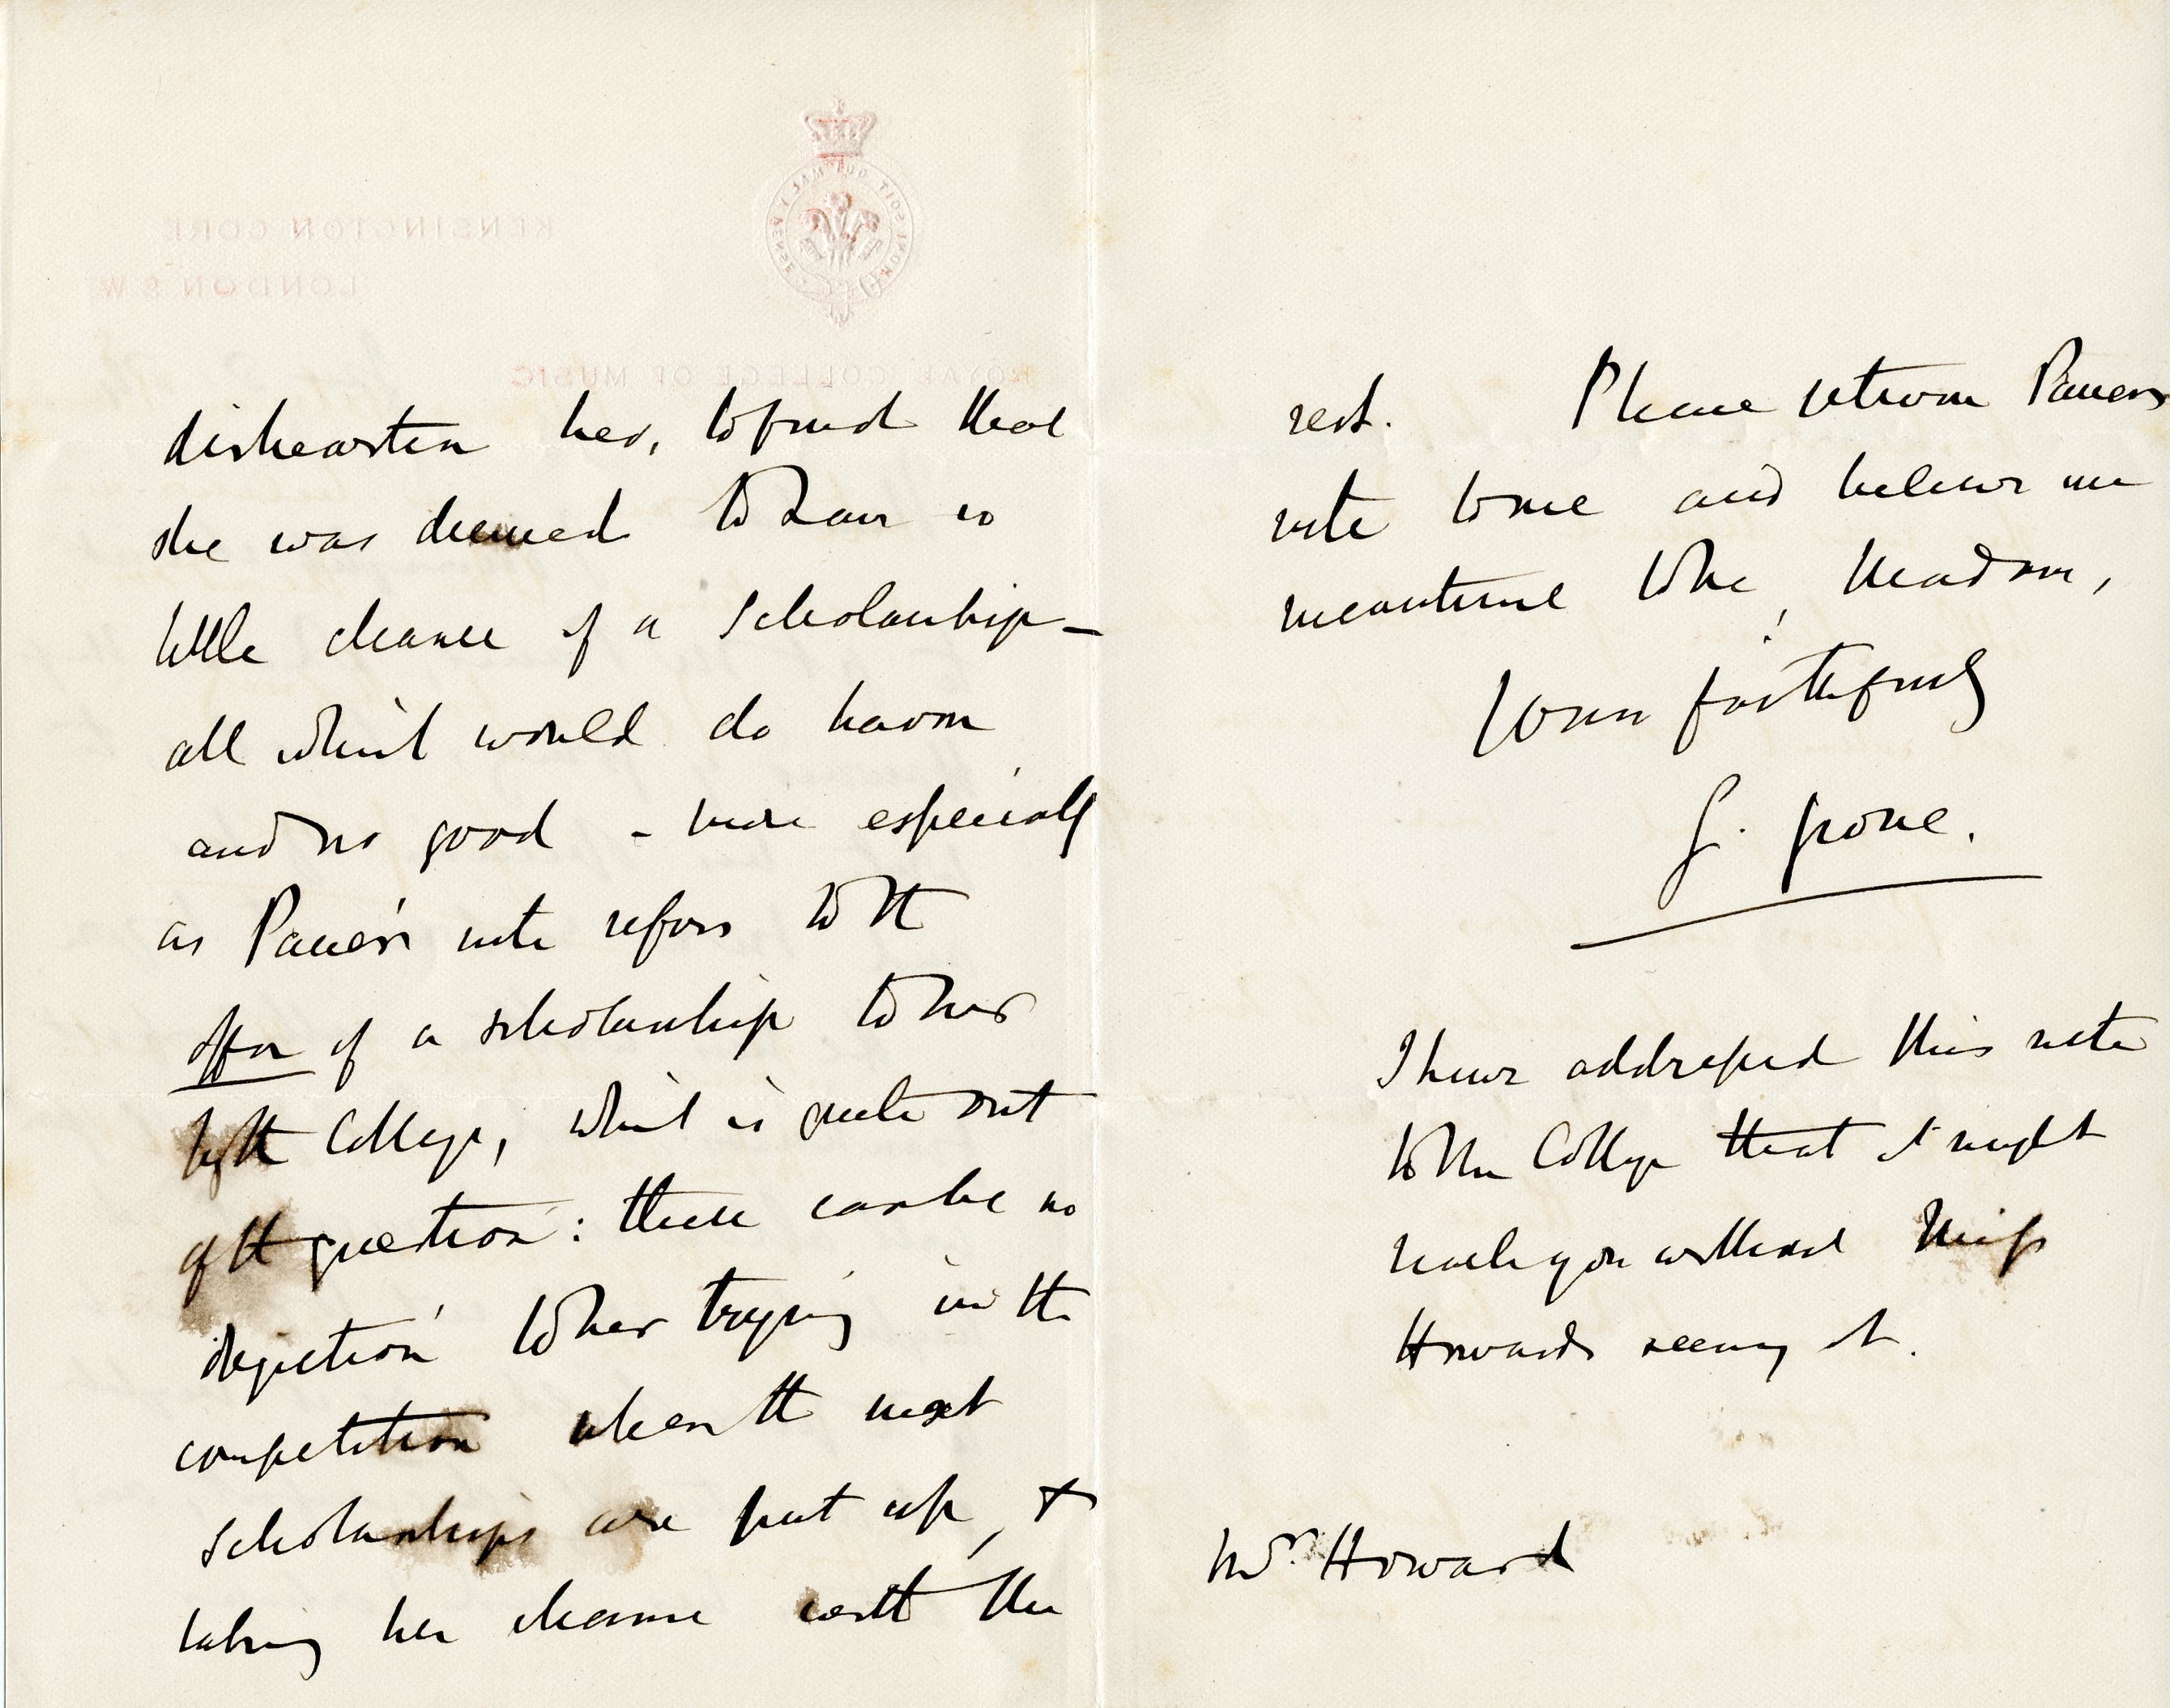 KENSINGTON GORE
LONDON S.W
HONI SOIT QUI MAL Y PENSE
ROYAL COLLEGE OF MUSIC
dishearten her, to find that
she was deemed to have so
little chance of a Scholarship –
all which would do harm
and no good – more especially
as Pauer's note refers to the
offer of a scholarship to her
by the College, which is quite out
of the question: there can be no
objection to her trying in the
competition when the next
scholarships are put up, &
taking her chance with the
rest. Please return Pauers
note to me and believe me
meantime to be, Madam,
Yours faithfully
G. Grove.
I have addressed this note
to the College that it might
reach you without Miss
Howards seeing it.
Mrs Howard